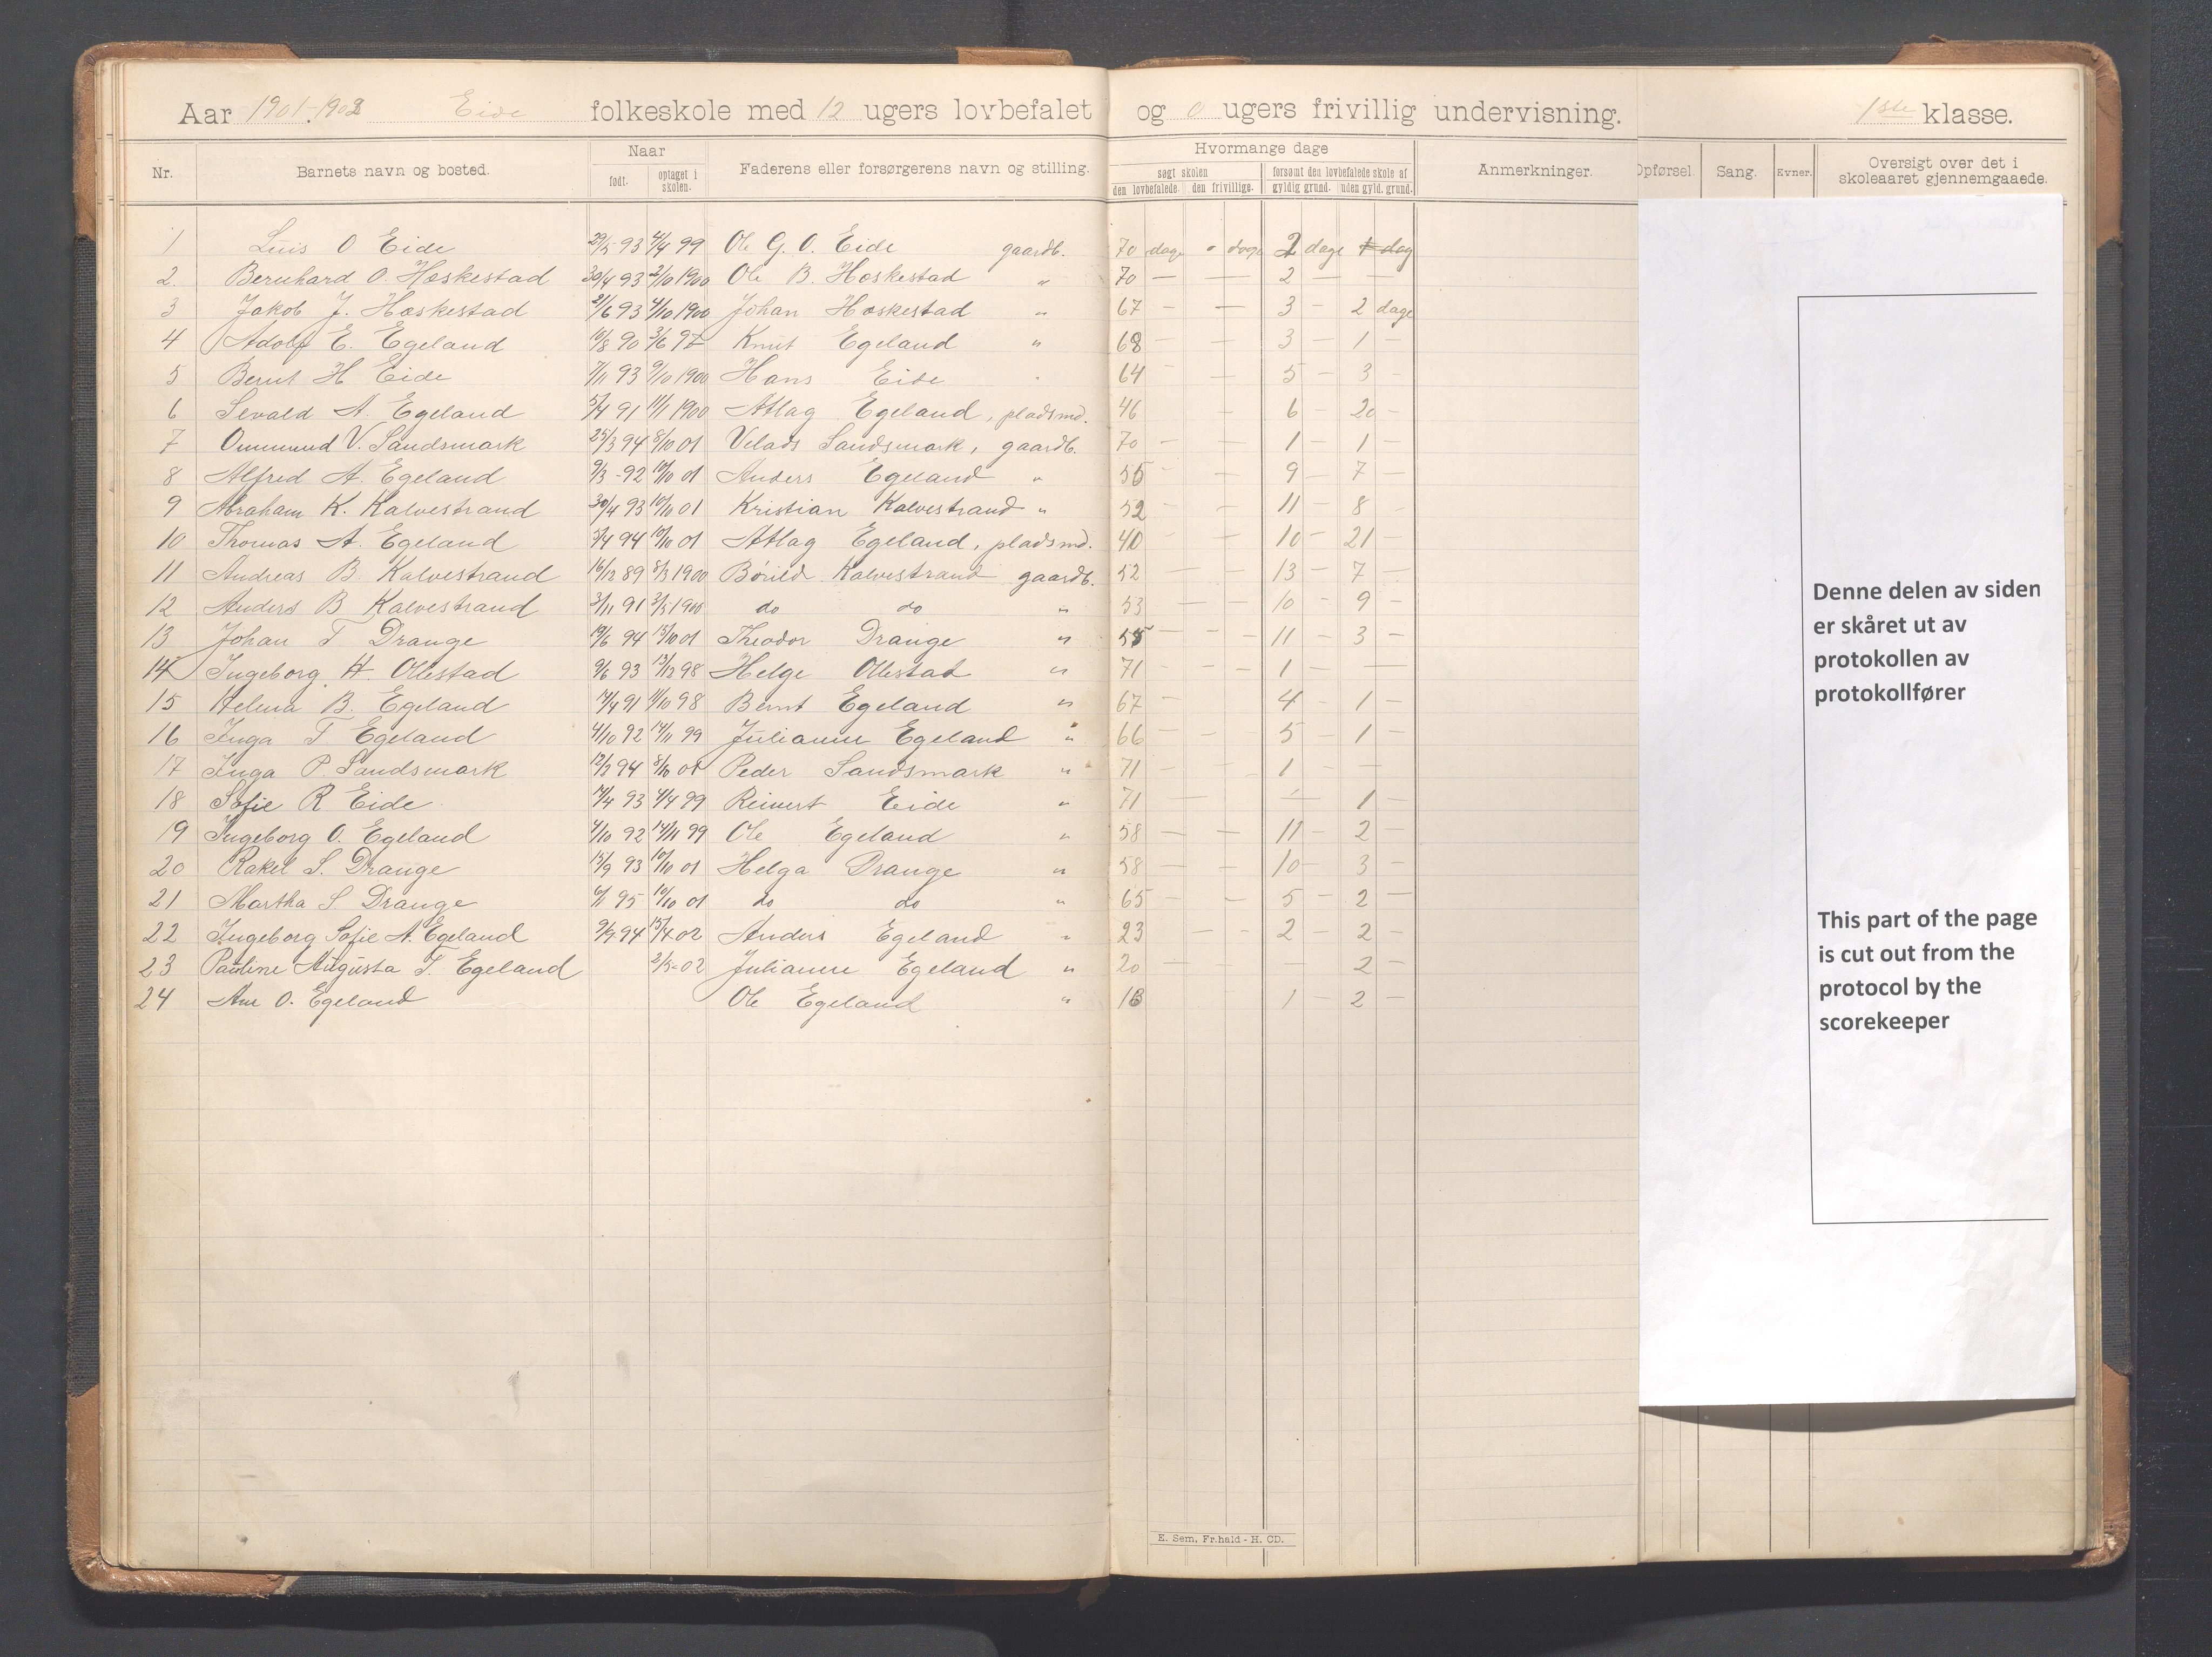 Aar 1901-1902 Eide folkeskole med 12 ugers lovbefalet og 0 ugers frivillig undervisning. 1ste klasse.
Nr. Barnets navn og bosted. Naar født. optaget i skolen. Faderens eller forsørgerens navn og stilling. Hvormange dage søgt skolen den lovbefalede. den frivillige. forsømt den lovbefalede skole af gyldig grund. uden gyld. grund. Anmerkninger. Opførsel. Sang. Evner. Oversigt over det i skoleaaret gjennemgaaede.
1 Luis O Eide 29/5 93 4/4 99 Ole G. O. Eide gaardb. 70 dage " dage 2 dage 1 dag
2. Bernhard O. Hæskestad 30/4 93 2/10 1900 Ole B. Hæskestad " 70 — — 2 — —
3 Jakob J. Hæskestad 21/6 93 4/10 1900 Johan Hæskestad " 67 — — 3 – 2 dage
4 Adolf E. Egeland 10/8 90 3/6 97 Knut Egeland " 68 — — 3 – 1 –
5 Bernt H Eide 7/11 93 9/10 1900 Hans Eide " 64 – — 5 – 3 –
6 Sevald A. Egeland 5/4 91 11/1 1900 Atlag Egeland, pladsmd. 46 – 6 – 20 –
7 Ommund V. Sandsmark 25/3 94 8/10 01 Velads Sandsmark, gaardb. 70 – — 1 – 1 –
8 Alfred A. Egeland 9/3 -92 10/10 01 Anders Egeland " 55 – – 9 – 7 –
9 Abraham K. Kalvestrand 30/4 93 10/10 01 Kristian Kalvestrand " 52 – – 11 – 8 –
10 Thomas A. Egeland 5/4 94 10/10 01 Atlag Egeland, pladsmd. 40 – – 10 – 21 –
11 Andreas B. Kalvestrand 16/12 89 8/3 1900 Børild Kalvestrand gaardb. 52 — – 13 – 7 –
12 Anders B Kalvestrand 3/11 91 3/5 1900 do do " 53 — — 10 – 9 –
13 Johan T Drange 19/6 94 15/10 01 Theodor Drange " 55 — – – 11 – 3 –
14 Ingeborg H. Ollestad 9/6 93 13/12 98 Helge Ollestad " 71 – – – 1 – —
15 Helena B. Egeland 14/4 91 11/10 98 Bernt Egeland " 67 – 4 – 1 –
16 Inga T Egeland 4/10 92 14/11 99 Julianne Egeland " 66 – – – 5 – 1 –
17 Inga P. Sandsmark 12/3 94 8/10 01 Peder Sandsmark " 71 – – 1 – —
18 Sofie R Eide 14/4 93 4/4 99 Reinert Eide " 71 — — — 1 –
19 Ingeborg O. Egeland 4/10 92 14/11 99 Ole Egeland " 58 — — 11 – 2 –
20 Rakel S. Drange 15/9 93 10/10 01 Helga Drange " 58 — – 10 – 3 –
21 Martha S Drange 6/1 95 10/10 01 do do " 65 – – 5 – 2 –
22 Ingeborg Sofie A. Egeland 9/7 94 15/4 02 Anders Egeland " 23 — – – 2 – 2 –
23 Pauline Augusta T. Egeland 2/5-02 Julianne Egeland " 20 — – – 2 –
24 Ane O. Egeland Ole Egeland " 1 – 2 –
Denne delen av siden
er skåret ut av
protokollen av
protokollfører
This part of the page
is cut out from the
protocol by the
scorekeeper
E. Sem, Fr.hald - H. CD.